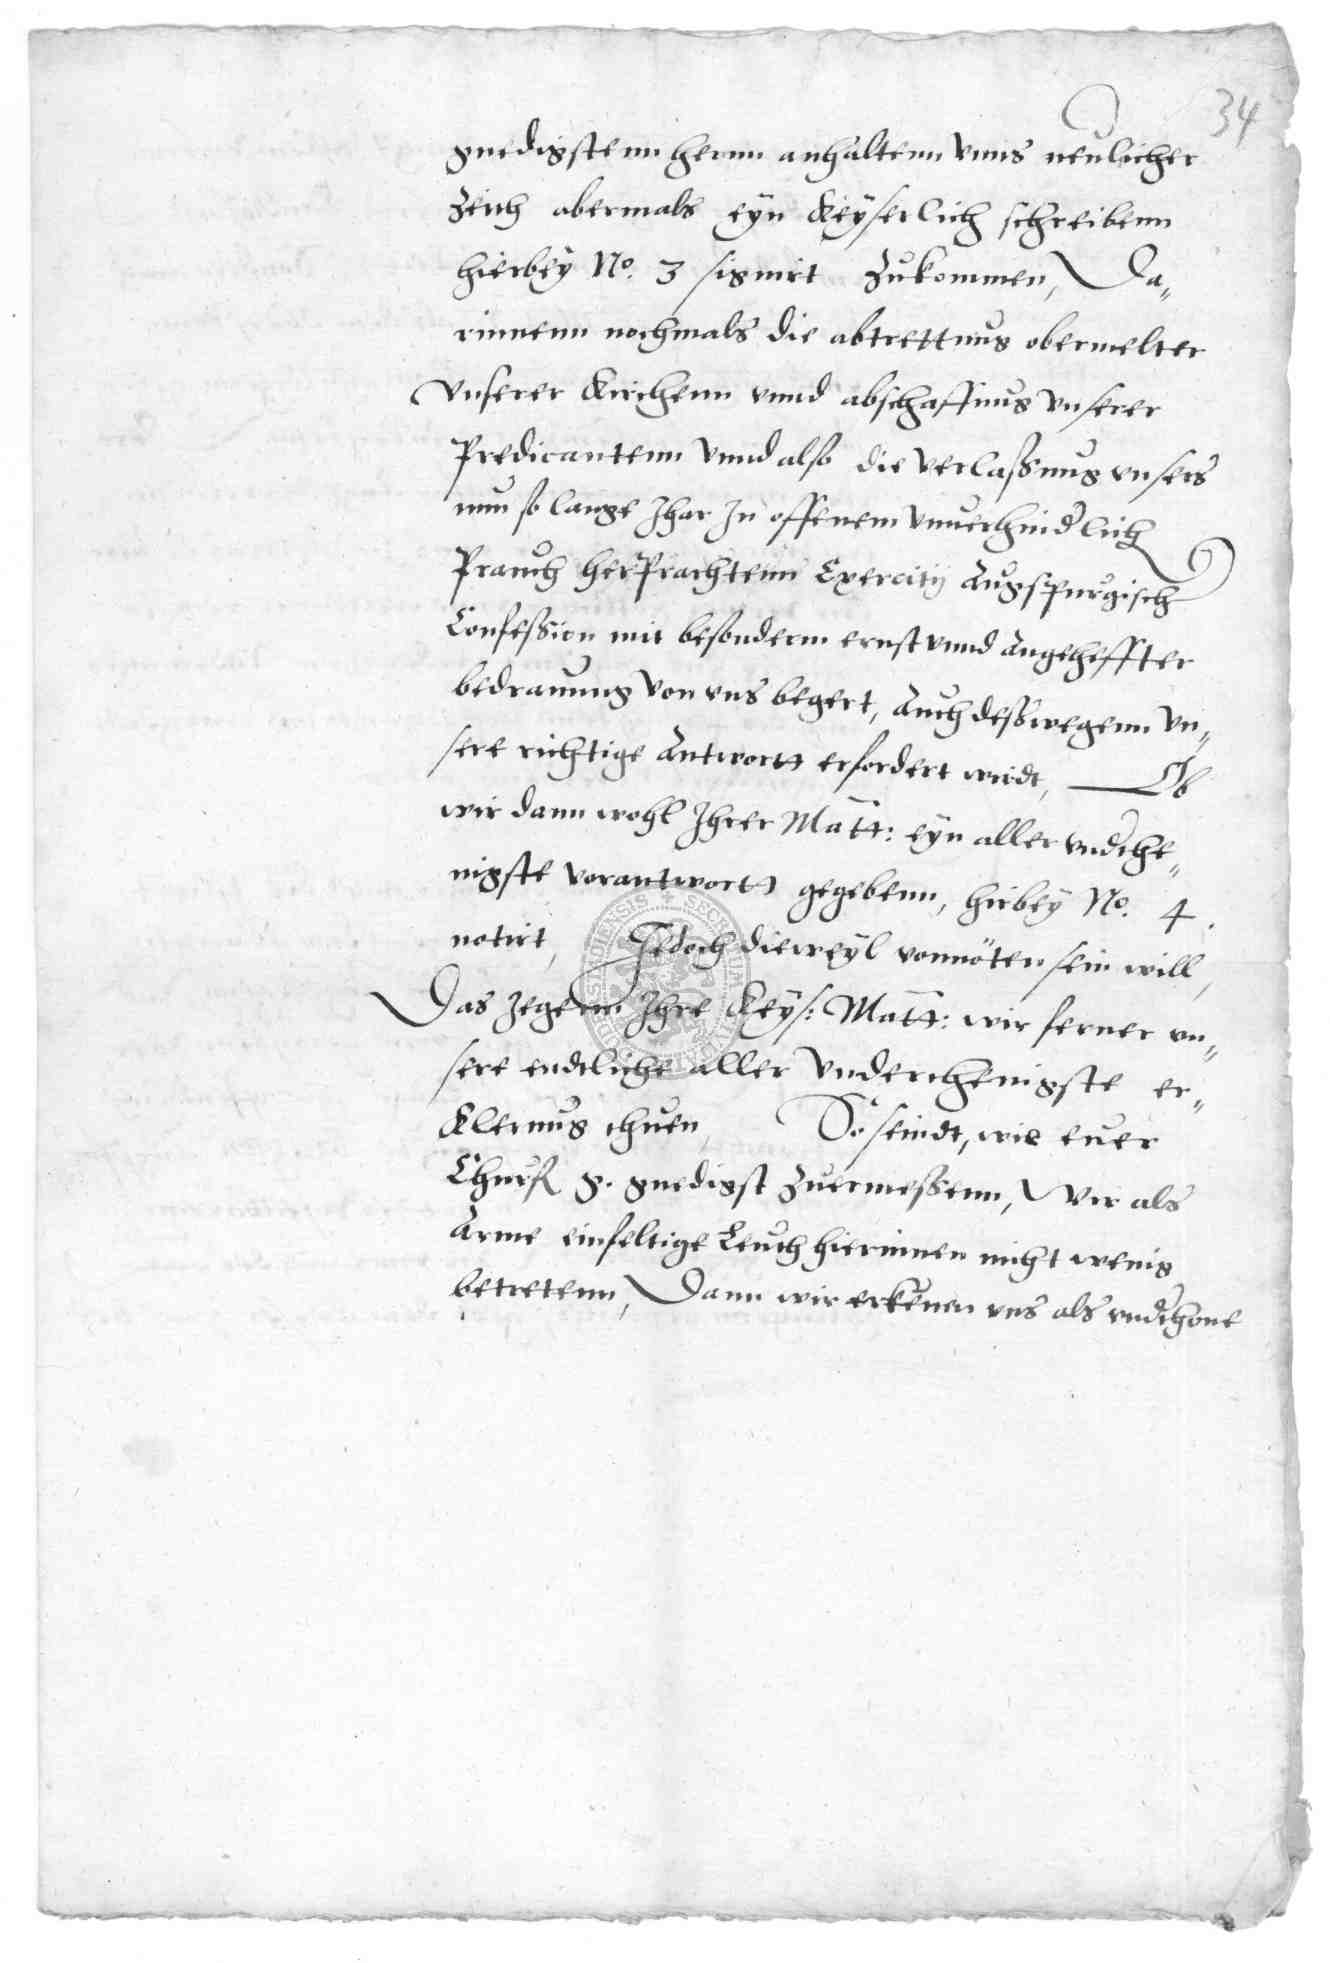 34
gnedigstenn hernn anhaltenn vnns neulicher
Zeith abermals eyn Keyserlich schreibenn
hierbey No. 3 signirt Zukommen, Da=
rinnenn nochmals die abtrettung obermelter
Vnserer Kirchenn vnnd abschaffung vnserer
Predicantenn Vnnd also die verlassung vnsers
nun so lange Jhar Jn offenem Vnuerhindlich
Prauch herPrachtenn Exercitij Augspurgisch
Confession mit besonderm ernst vnnd Angeheffter
bedrauung Von vns begert, Auch dessweg​enn Vn=
sere richtige Antwortt erfordert wirdt, Ob
wir dann wohl Jhrer Matt: eyn aller vndthe=
nigste vorantwortt gegebenn, hirbey No. 4.
notirt, Jedoch dieweyl vonnöten sein will,
Das Jegenn Jhre Keys: Matt: wir ferner vn=
sere endtliche aller Vnderthenigste er=
Klerung thuen, So seindt, wie euer
Churf. g. gnedigst Zuermessenn, Wir als
Arme einfeltige Leuth hierinnen nicht wenig
betretenn, Dann wir erkennen vns als vndthone
SECRETUM